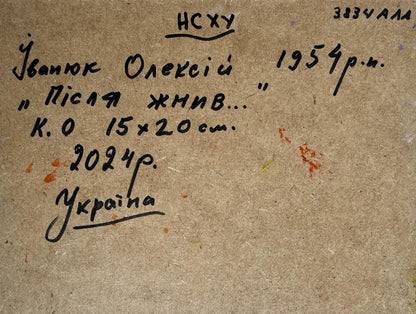 НСХУ 3834АЛЛ
Іванюк Олексій 1954р.н.
„Після жнив..."
К.О 15х20см.
2024р.
Україна